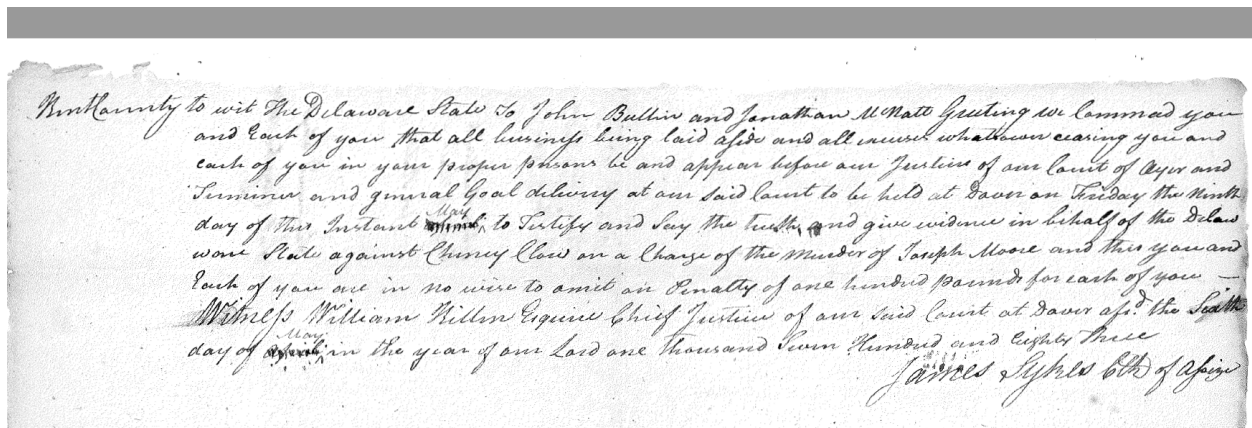 Kent County to wit The Delaware State To John Bullin and Jonathan McNatt Greeting we Command you
and Each of you that all business being laid aside and all excuses whatsoever ceasing you and
each of you in your proper persons be and appear before our Justices of our Court of Oyer and
Terminer and general Goal delivery at our said Court to be held at Dover on Friday the Ninth
day of this Instant May to Testify and Say the truth and give evidence in behalf of the Delaw
ware State against Cheney Clow on a Charge of the Murder of Joseph Moore and this you and
Each of you are in no wise to omit on Penalty of one hundred pounds for each of you —
Witness William Killen Esquire Chief Justice of our said Court at Dover afsd. the Sixth
day of May in the year of our Lord one thousand Seven Hundred and Eighty Three
James Sykes Clk of Assize